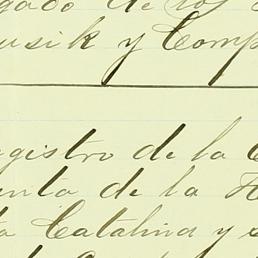 gado de los
usik y Comp
egistro de la C
enta de la H
ta Catalina y s